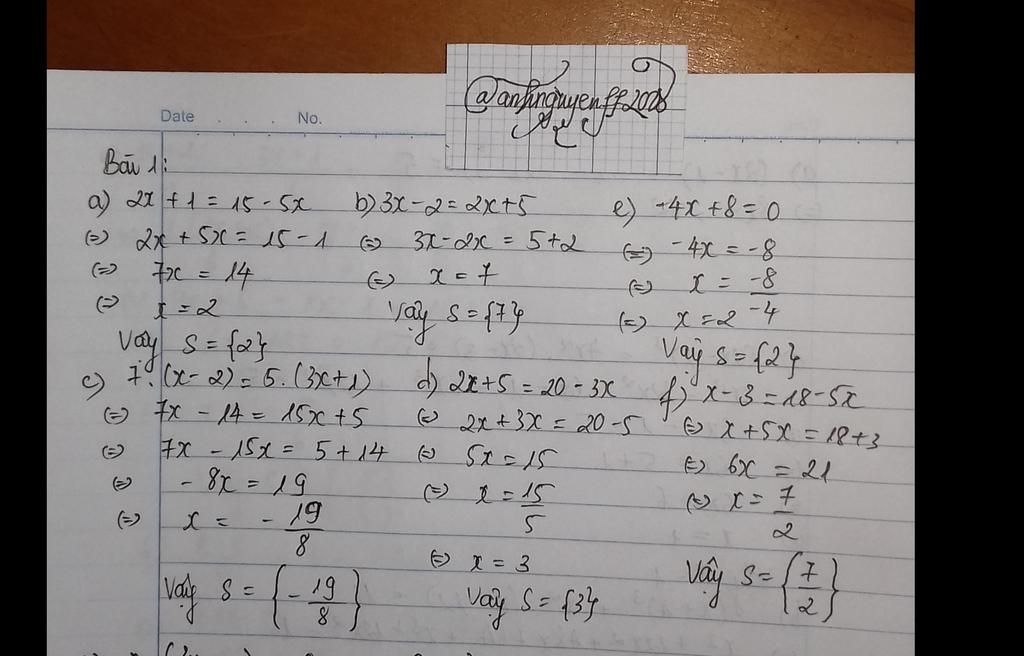 @anhnguyenff2008
Date . . . No.
Bài 1:
a) 2x + 1 = 15 - 5x
(=) 2x + 5x = 15 - 1
(=) 7x = 14
(=) x = 2
Vậy S = {2}
b) 3x - 2 = 2x + 5
(=) 3x - 2x = 5 + 2
(=) x = 7
Vậy S = {7}
e) -4x + 8 = 0
(=) -4x = -8
(=) x = -8/-4
(=) x = 2
Vậy S = {2}
c) 7. (x - 2) = 5. (3x + 1)
(=) 7x - 14 = 15x + 5
(=) 7x - 15x = 5 + 14
(=) -8x = 19
(=) x = -19/8
Vậy S = {-19/8}
d) 2x + 5 = 20 - 3x
(=) 2x + 3x = 20 - 5
(=) 5x = 15
(=) x = 15/5
(=) x = 3
Vậy S = {3}
f) x - 3 = 18 - 5x
(=) x + 5x = 18 + 3
(=) 6x = 21
(=) x = 7/2
Vậy S = {7/2}